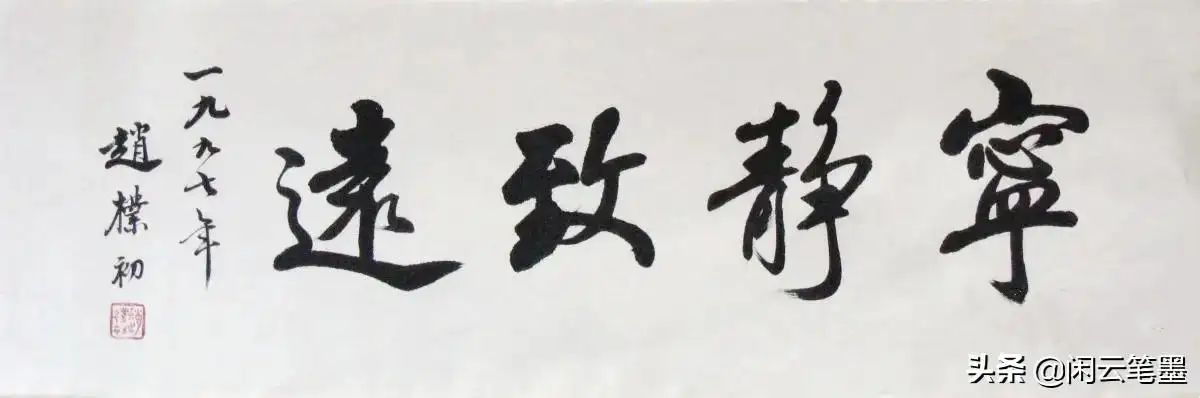 寧靜致遠
一九九七年
趙樸初
头条 @闲云笔墨